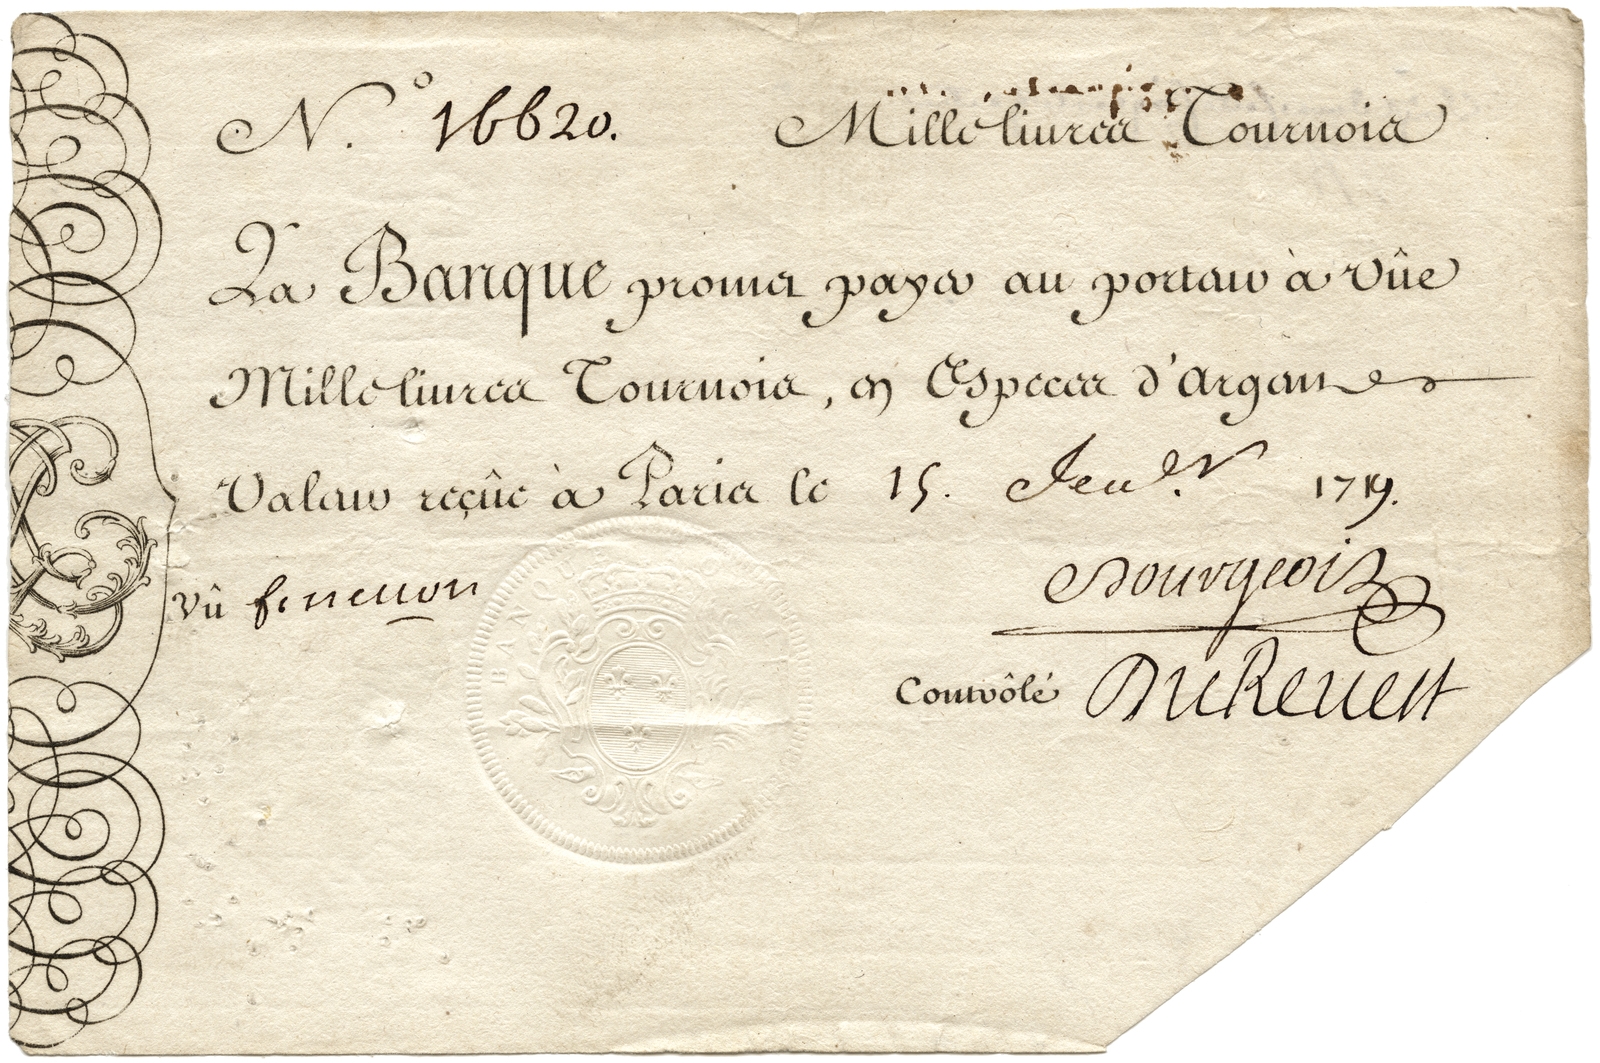 N.º 16620. Mille livres Tournois
La Banque promet payer au porteur à vûe
Mille livres Tournois, en Especes d'Argent
Valeur reçûe à Paris le 15. Jenv.er 1719.
Vû fenellon
Bourgeois
Controlé DuRevest
BAN